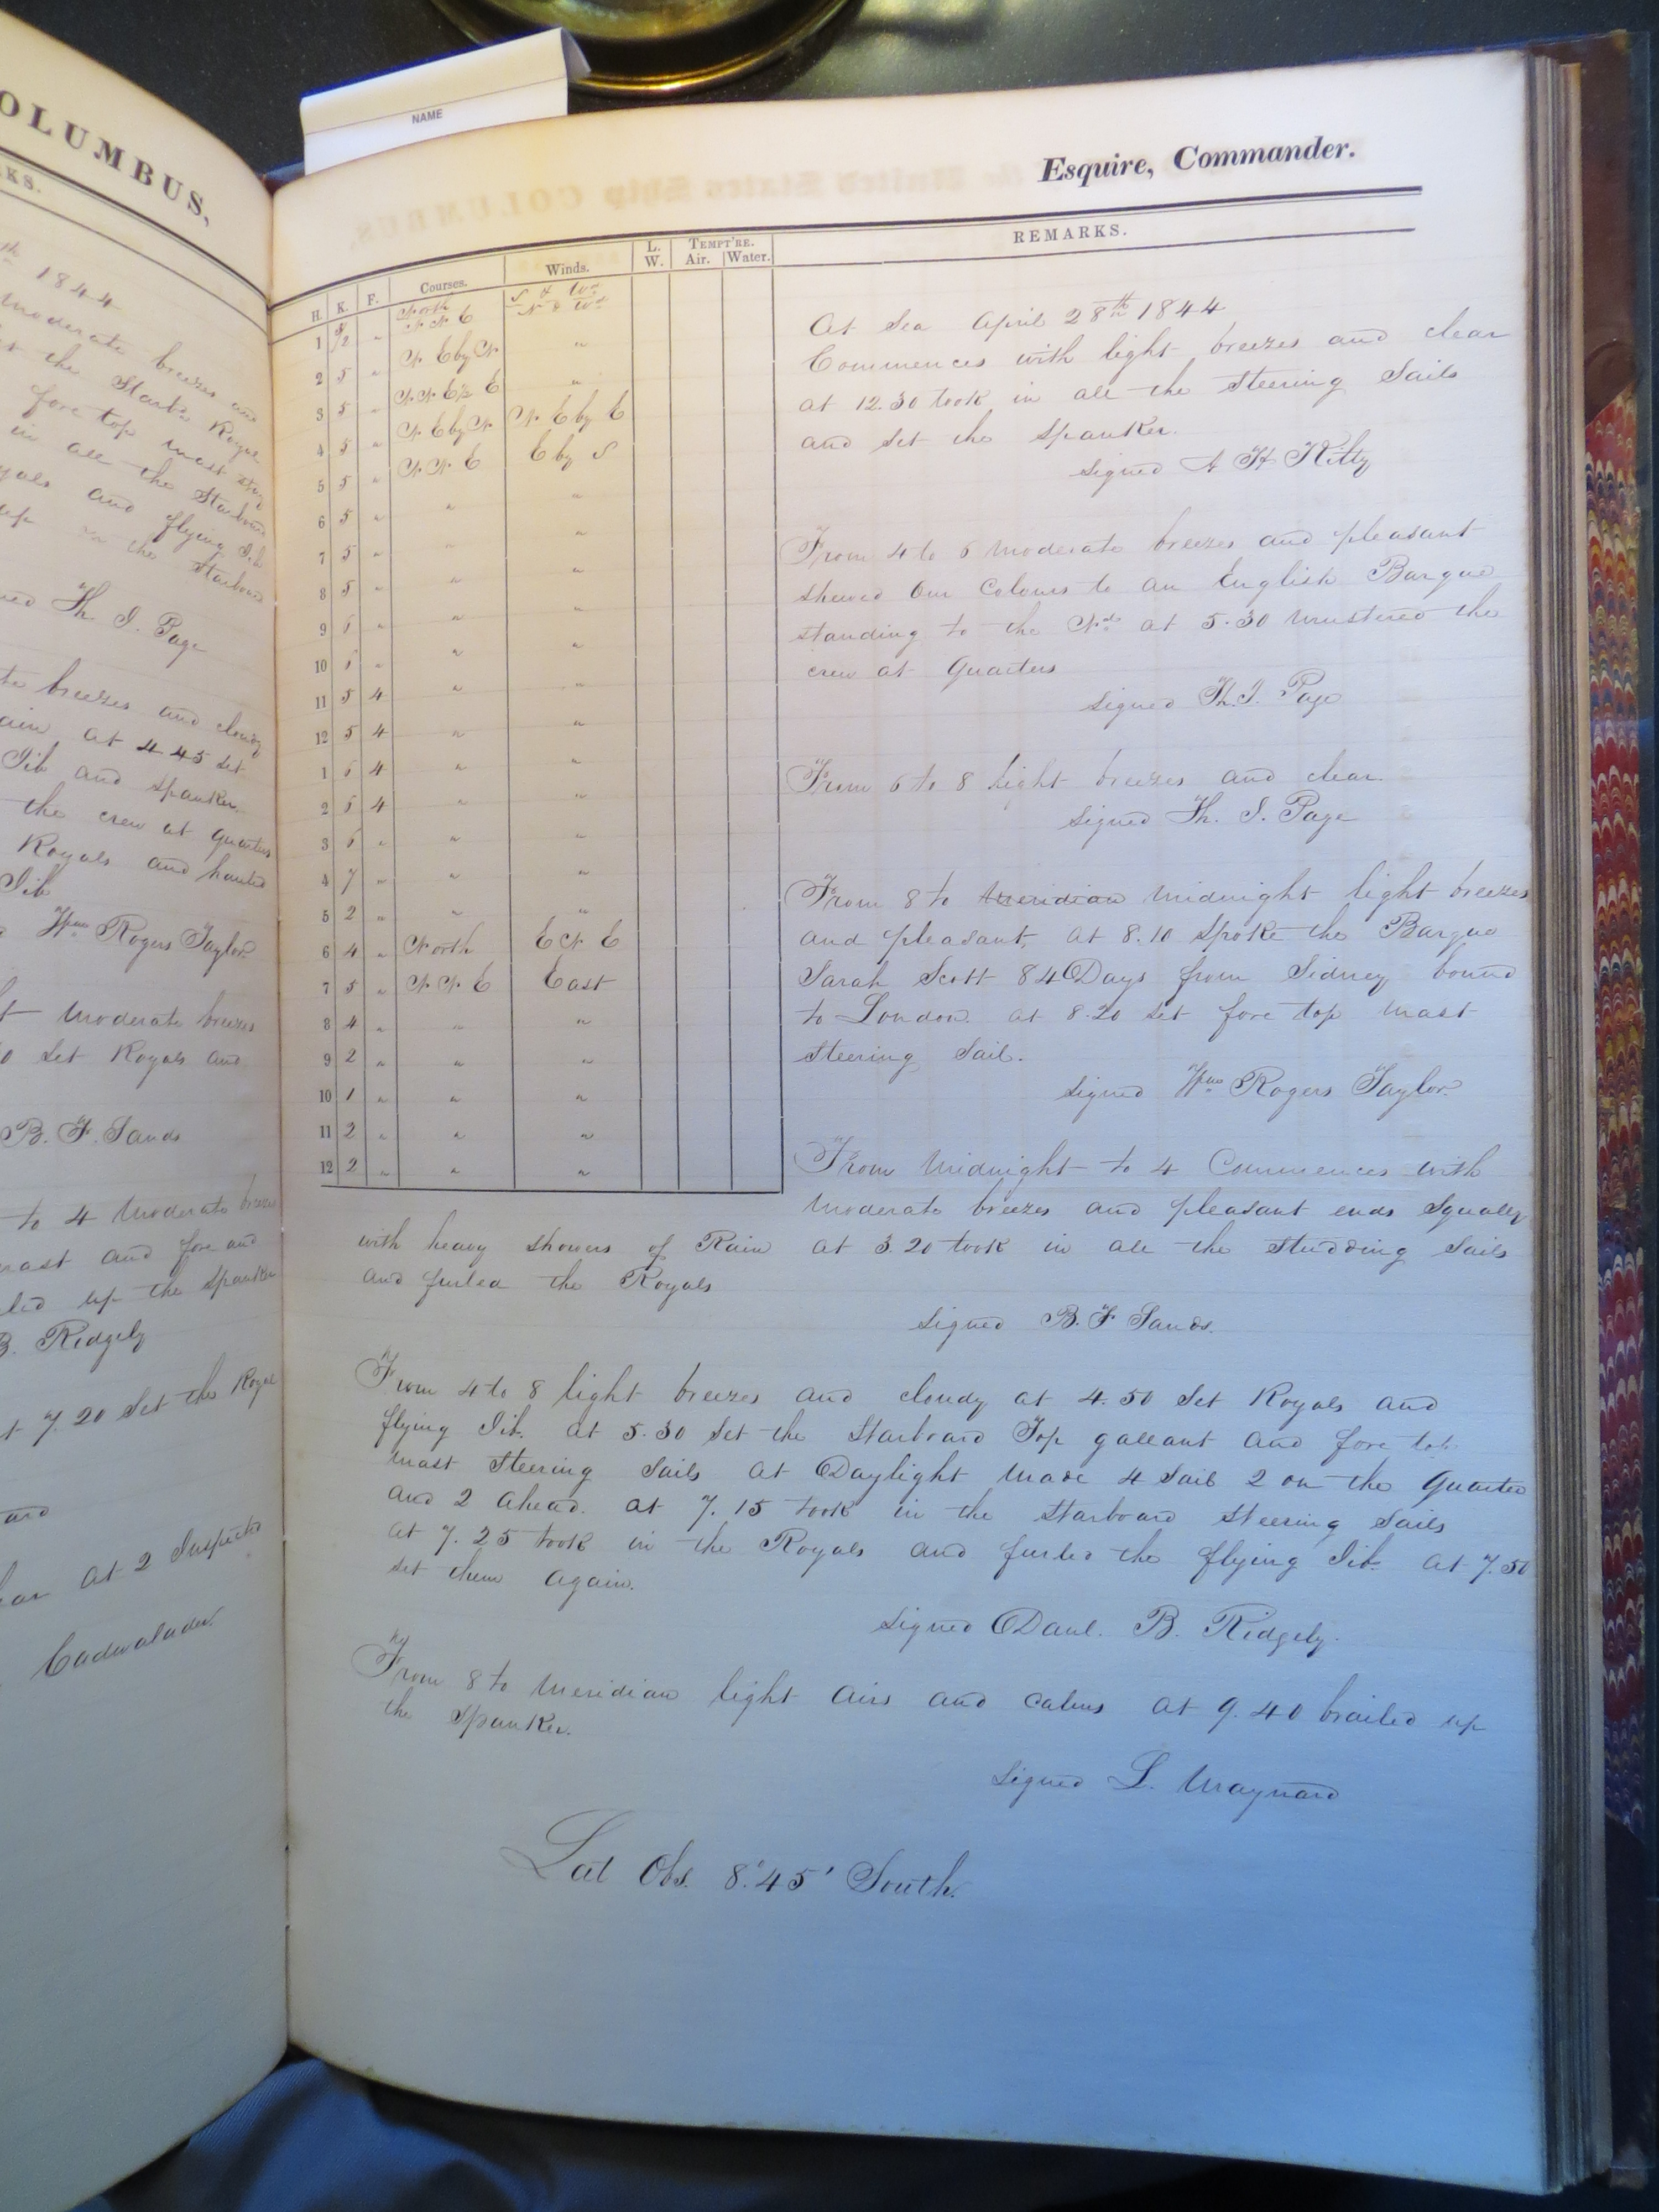 OLUMBUS,
KS.
1844
moderate breezes and
t the Starbd Royal
fore top mast
in all the Starboard
yals and flying Jib
up the Starboard
Th. J. Page
breezes and cloudy
ain at 4.45 set
Jib and spanker
the crew at quarters
Royals and hauled
Jib
Wm Rogers Taylor
t moderate breezes
0 set Royals and
B. F. Sands
to 4 moderate breezes
mast and fore and
up the spanker
B. Ridgely
t 7.20 set the Royal
at 2 Inspected
Cadwalader
NAME
Esquire, Commander.
H. K. F. Courses. Winds. L. W. TEMPT'RE. Air. Water. REMARKS.
North S & Wd
1 N N E N & Wd
2 5 " N E by N "
3 5 " N N E ½ E "
4 5 " N E by N N E by E
5 5 " N N E E by S
6 5 " " "
7 5 " " "
8 5 " " "
9 " " "
10 " " "
11 5 4 " "
12 5 4 " "
1 4 " "
2 5 4 " "
3 " " "
4 7 " " "
5 2 " " "
6 4 " North E N E
7 5 " N N E East
8 4 " " "
9 2 " " "
10 1 " " "
11 2 " " "
12 2 " " "
At Sea April 28th 1844
Commences with light breezes and clear
at 12.30 took in all the Steering Sails
and set the Spanker.
Signed A H Kilty
From 4 to 6 moderate breezes and pleasant
shewed our Colours to an English Barque
standing to the Nd at 5.30 mustered the
crew at Quarters
Signed Th. J. Page
From 6 to 8 light breezes and clear
Signed Th. J. Page
From 8 to meridian midnight light breezes
and pleasant, at 8.10 spoke the Barque
Sarah Scott 84 Days from Sidney bound
to London. at 8.20 set fore top mast
steering Sail.
Signed Wm Rogers Taylor
From Midnight to 4 Commences with
moderate breezes and pleasant ends Squally
with heavy showers of Rain at 3.20 took in all the Studding Sails
and furled the Royals
Signed B. F Sands.
From 4 to 8 light breezes and cloudy at 4.50 set Royals and
flying Jib. at 5.30 set the Starboard Top gallant and fore top
mast Steering Sails at Daylight made 4 Sail 2 on the Quarter
and 2 ahead. at 7.15 took in the starboard Steering Sails
at 7.25 took in the Royals and furled the flying Jib at 7.50
set them again.
Signed Danl. B. Ridgely.
From 8 to Meridian light airs and calms at 9.40 brailed up
the Spanker.
Signed L. Maynard
Lat Obs. 8°45' South.